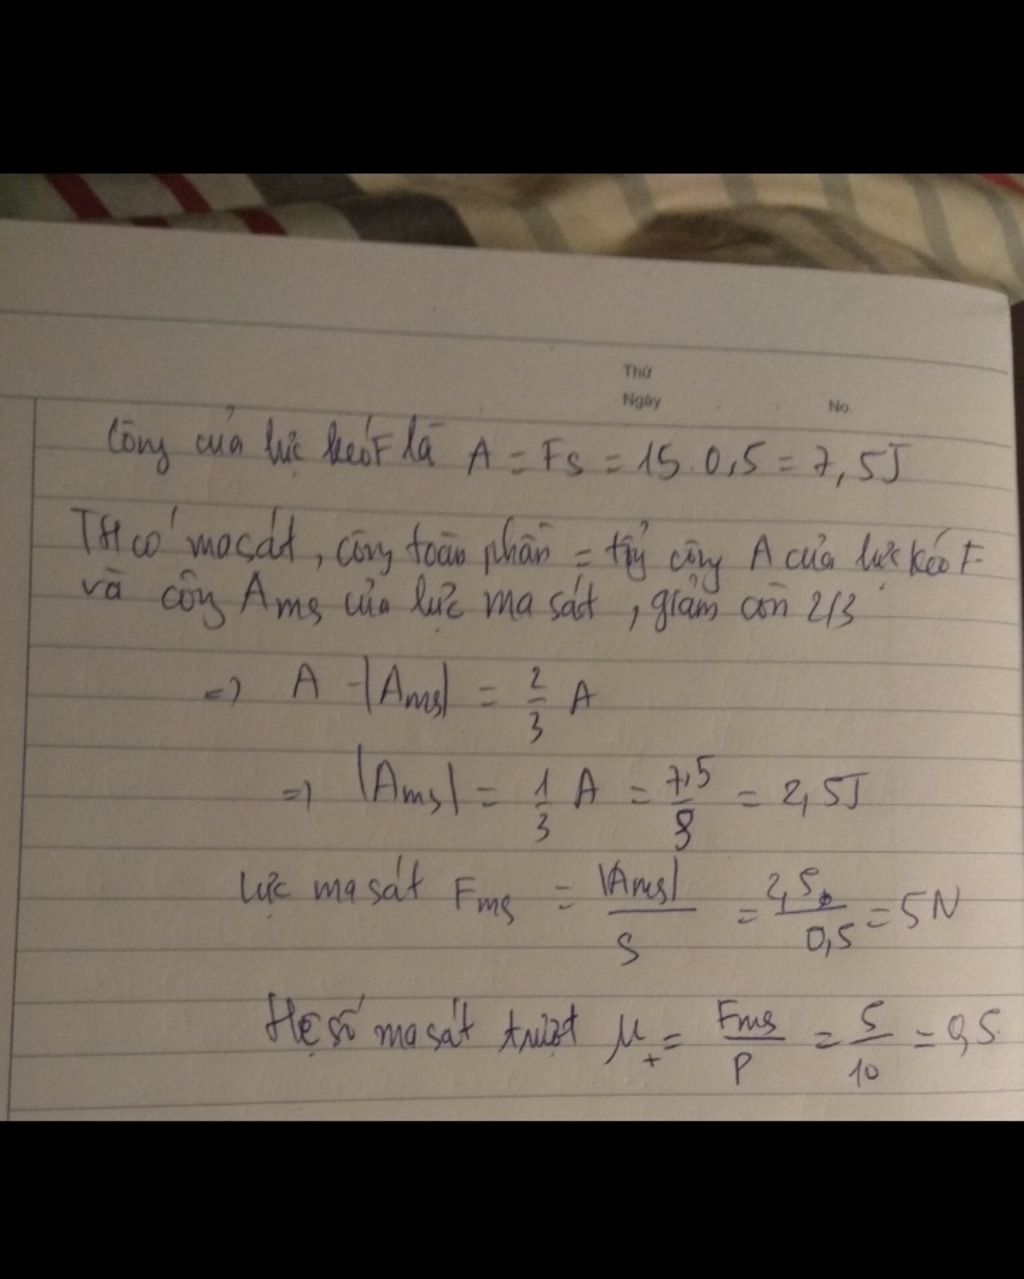 Thứ
Ngày
No.
Công của lực kéo F là A = Fs = 15.0,5 = 7,5J
TH có ma sát, công toàn phần = tổng công A của lực kéo F
và công Ams của lực ma sát, giảm còn 2/3
=> A - |Ams| = 2/3 A
=> |Ams| = 1/3 A = 7,5/3 = 2,5J
Lực ma sát Fms = |Ams|/s = 2,5/0,5 = 5N
Hệ số ma sát trượt μt = Fms/P = 5/10 = 0,5